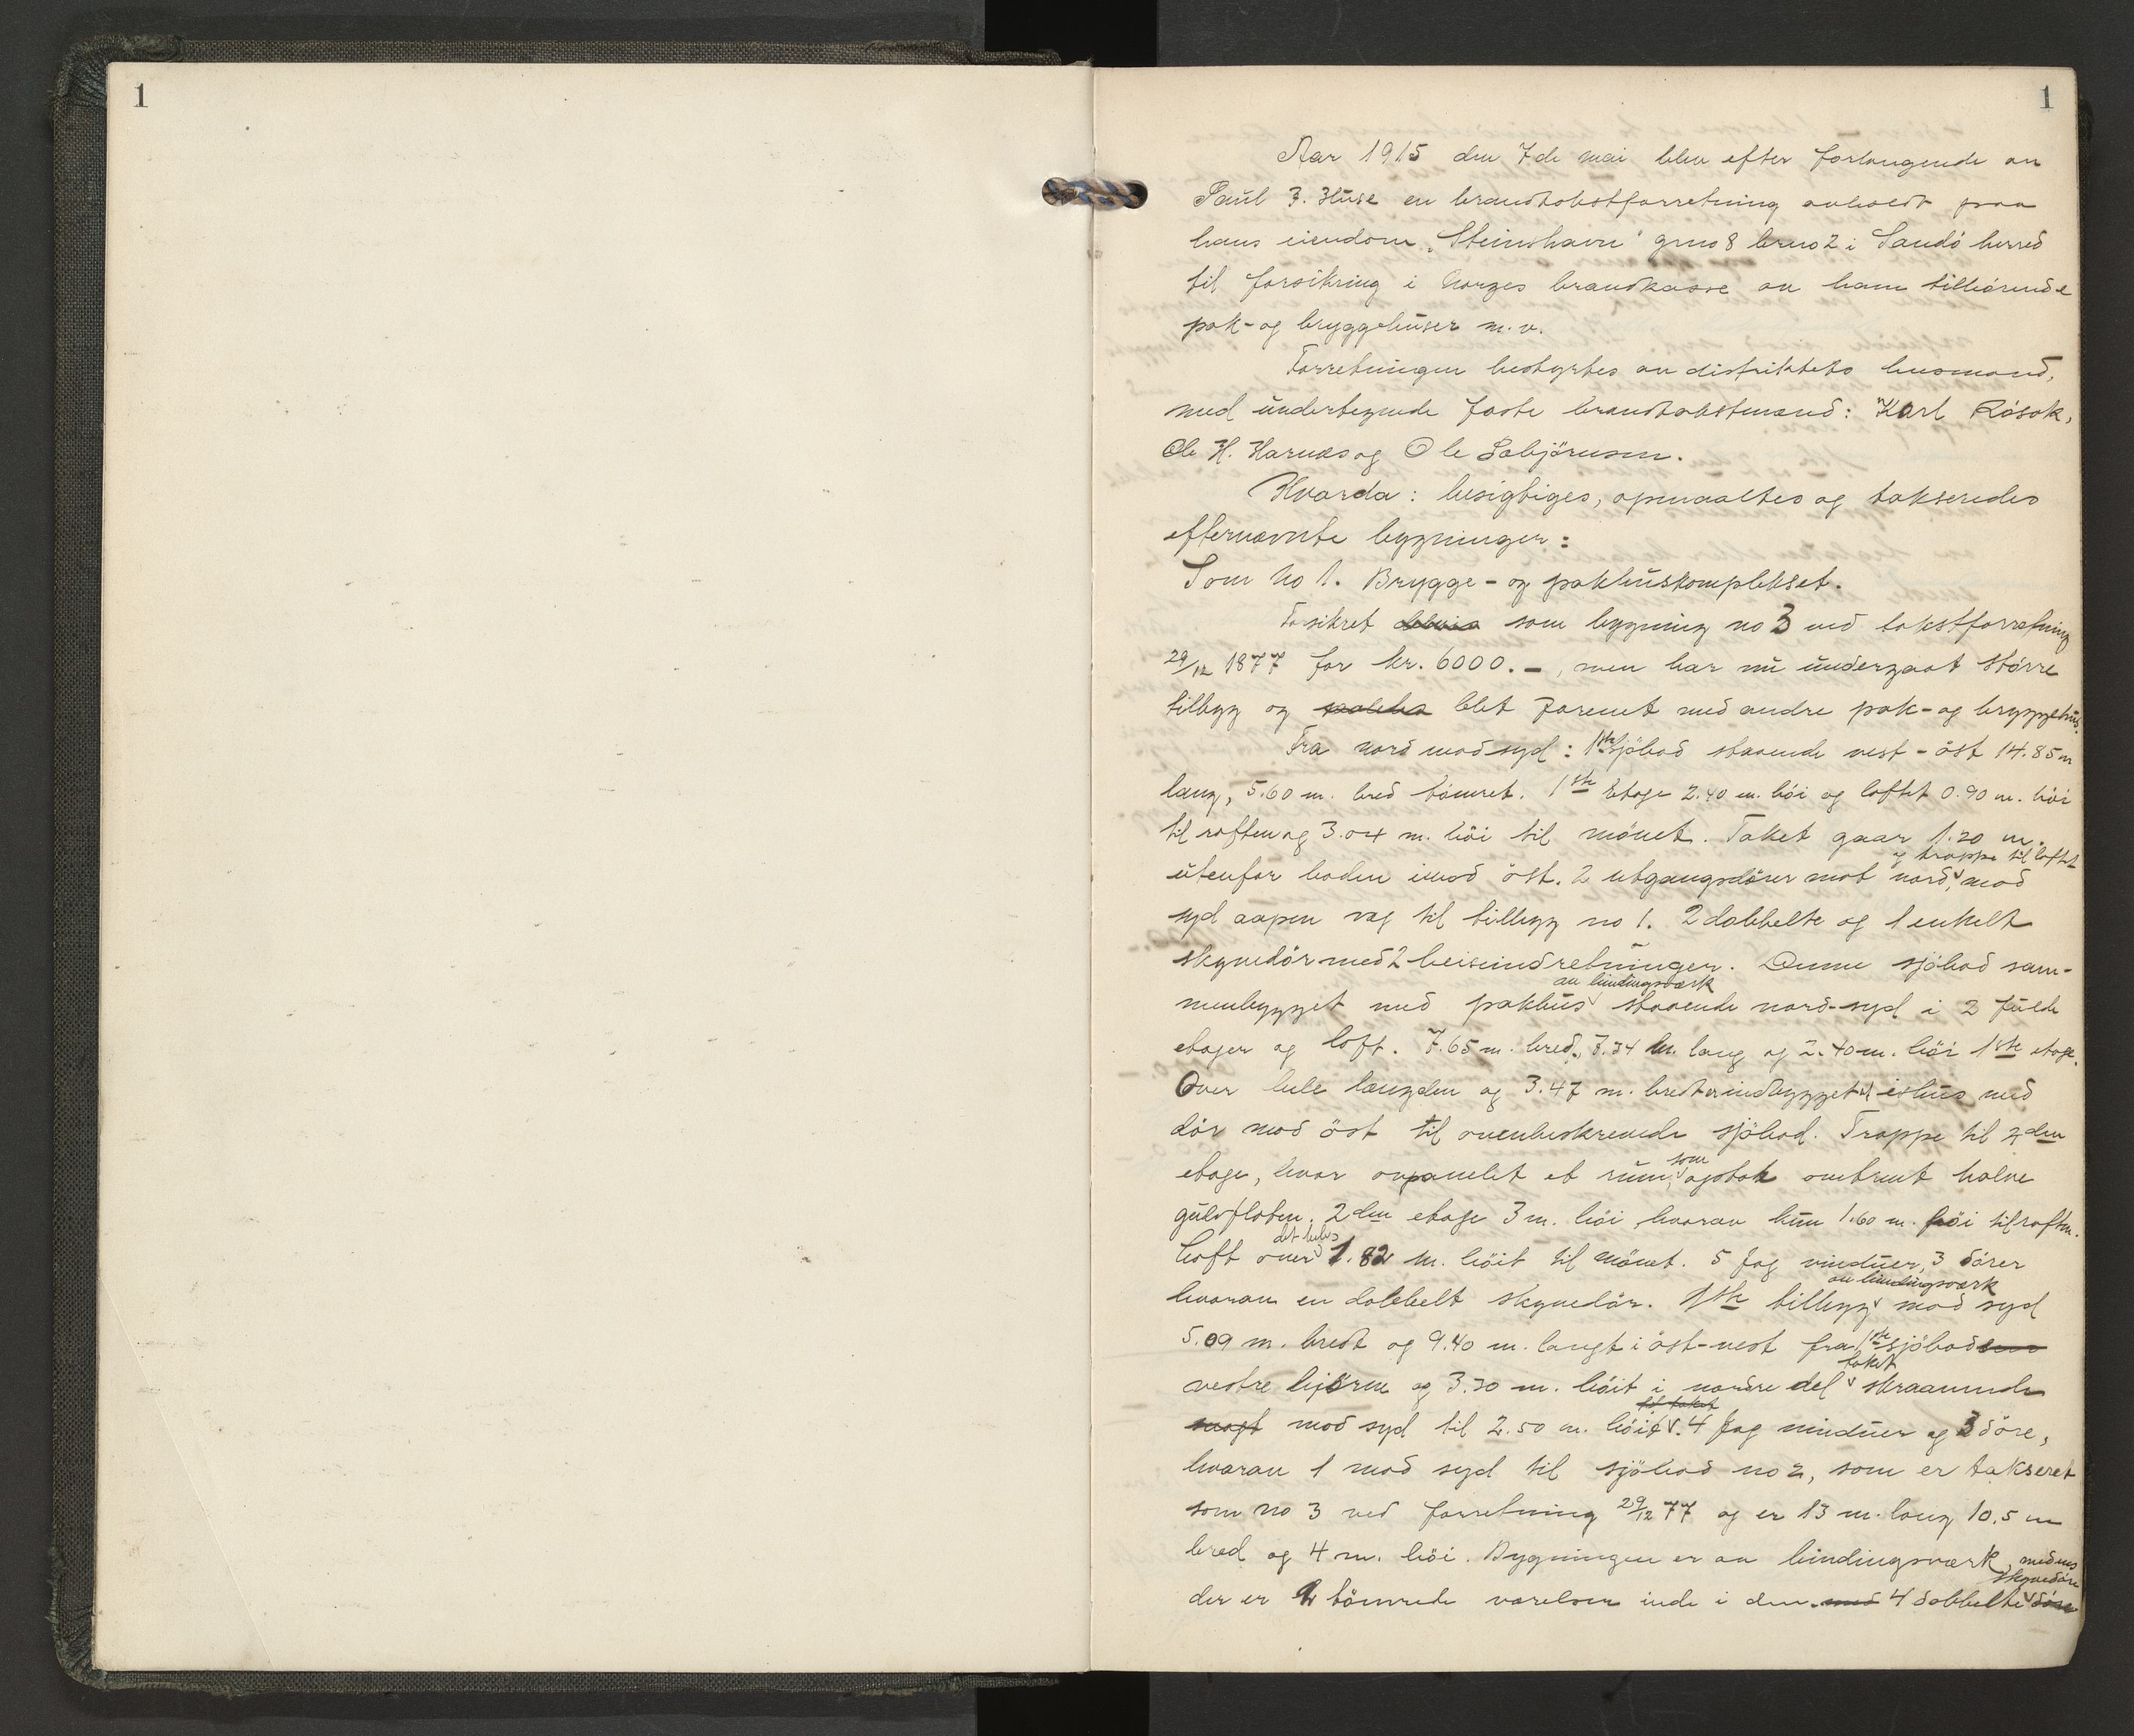 1
1
Aar 1915 den 7de mai blev efter forlangende av
Paul J. Huse en brandtakstforretning avholdt paa
hans eiendom „Steinshavn“ grno 8 brno 2 i Sandö herred
til forsikring i Norges brandkasse av ham tilhörende
pak- og bryggehuser m.v.
Forretningen bestyrtes av distriktets lensmand,
med undertegnede faste brandtakstmænd: Karl Rösok,
Ole H. Harnes og Ole Sabjörnsen.
Hvorda: besigtiges, opmaaltes og takseredes
efternævnte bygninger:
Som No 1. Brygge- og pakhuskomplekset.
Forsikret som bygning no 3 ved takstforretning
29/12 1877 for kr. 6000.-, men har nu undergaat större
tilbygg og blet forenet med andre pak- og bryggehus.
Fra nord mod syd: 1ste sjöbod staaende vest-öst 14.85 m
lang, 5.60 m. bred tömret. 1ste Etage 2.40 m. höi og loftet 0.90 m. höi
til raften og 3.04 m. höi til mönet. Taket gaar 1.20 m.
og trappe til loftet
utenfor boden imod öst. 2 utgangsdörer mot nord, mod
syd aapen væg til tilbygg no 1. 2 dobbelte og 1 enkelt
skyvedör med 2 heiseindretninger. Denne sjöbod sam-
av bindingsværk
menbygget med pakhus staaende nord-syd i 2 fulde
etager og loft. 7.65 m. bred, 7.34 m. lang og 2.40 m. höi 1ste etage.
Over hele længden og 3.47 m. bredt er indbygget et ishus med
dör mod öst til ovenbeskrevede sjöbod. Trappe til 2den
som
etage, hvor avpanelet et rum, optok omtrent halve
gulvflaten. 2den etage 3 m. höi hvorav kun 1.60 m. höi til raften.
det hele
Loft over 1.82 m. höit til mönet. 5 fag vinduer, 3 dörer
av bindingsværk
hvorav en dobbelt skyvedör. 1ste tilbygg mod syd
5.09 m. bredt og 9.40 m. langt i öst-vest fra 1ste sjöbod
taket
vestre hjörne og 3.30 m. höit i nordre del skraanende
mod syd til 2.50 m. höit. 4 fag vinduer og 3 döre,
hvorav 1 mod syd til sjöbod no 2, som er takseret
som no 3 ved forretning 29/12 77 og er 13 m. lang 10.5 m
bred og 4 m. höi. Bygningen er av bindingsværk, medens
skyvedöre
der er 2 tömrede værelser inde i den. 4 dobbelte